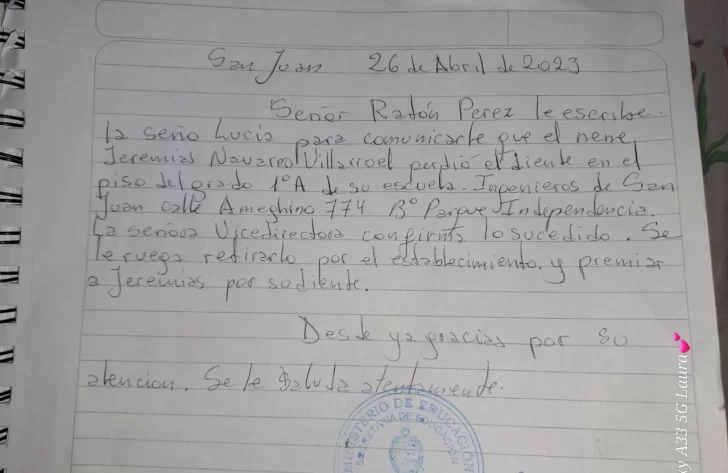 San Juan 26 de Abril de 2023
Señor Ratón Perez le escribe
la seño Lucia para comunicarle que el nene
Jeremias Navarro Villarroel perdió el diente en el
piso del grado 1º A de su escuela. Ingenieros de San
Juan calle Ameghino 774 Bº Parque Independencia.
La señora Vicedirectora confirma lo sucedido. Se
le ruega retirarlo por el establecimiento. y premiar
a Jeremias por su diente.
Desde ya gracias por su
atencion. Se le saluda atentamente.
MINISTERIO DE EDUCACIÓN
SECRETARIA DE EDUCACIÓN
xy A33 5G Laura